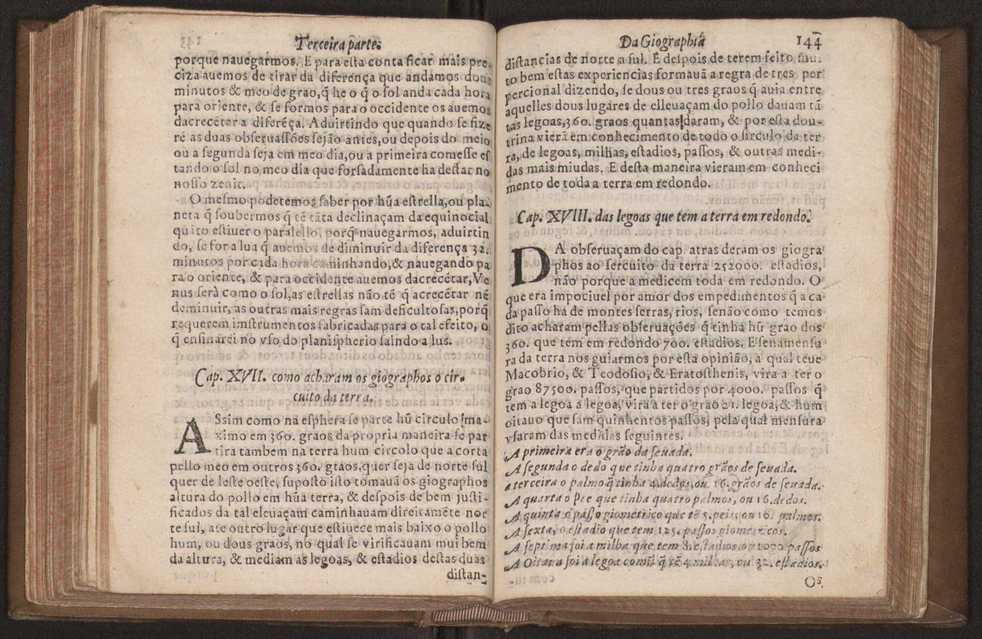 Terceira parte.
porque nauegarmos. E para esta conta ficar mais pre-
ciza auemos de tirar da diferença que andamos dous
minutos & meo de grao, q̃ he o q̃ o sol anda cada hora
para oriente, & se formos para o occidente os auemos
dacrecẽtar a diferẽça. Aduirtindo que quando se fize
rẽ as duas obseruassões sejão antes, ou depois do meio
ou a segunda seja em meo dia, ou a primeira comesse es
tando o sol no meo dia que forsadamente ha destar no
nosso zenic.
O mesmo podetemos saber por hũa estrella, ou pla-
neta q̃ soubermos q̃ tẽ tãta declinaçam da equinocial
quãto estiuer o paralello, porq̃ nauegarmos, aduirtin
do, se for a lua q̃ auemos de diminuir da diferença 32.
minutos por cada hora caminhando, & nauegando pa
ra o oriente, & para occidente auemos dacrecẽtar, Ve
nus serà como o sol, as estrellas não tẽ q̃ acrecẽtar nẽ
deminuir, as outras mais regras sam deficultosas, porq̃
requerem imstrumentos fabricadas para o tal efeito, o
q̃ ensinarei no vso do planispherio saindo a lus.
Cap. XVII. como acharam os giographos o cir-
cuito da terra.
ASsim como na esphera se parte hũ circulo ma-
ximo em 360. graos da propria maneira se par
tira tambem na terra hum circolo que a corta
pello meo em outros 360. graos, quer seja de norte sul
quer de leste oeste, suposto isto tomauã os giographos
altura do pollo em hũa terra, & despois de bem justi-
ficados da tal eleuaçam caminhauam direitamẽte nor
te sul, atè outro lugar que estiuece mais baixo o pollo
hum, ou dous graos, no qual se virificauam mui bem
da altura, & mediam as legoas, & estadios destas duas
distan-
Da Giographia
144
distancias de norte a sul. E despois de terem feito mui
to bem estas experiencias formauã a regra de tres per
percional dizendo, se dous ou tres graos q̃ auia entre
aquelles dous lugares de elleuaçam do pollo dauam tã
tas legoas, 360. graos quantas daram, & por esta dou-
trina vierã em conhecimento de todo o sirculo da ter
ra, de legoas, milhas, estadios, passos, & outras medi-
das mais miudas. E desta maneira vieram em conheci
mento de toda a terra em redondo.
Cap. XVIII. das legoas que tem a terra em redondo.
DA obseruaçam do cap. atras deram os giogra-
phos ao sercuito da terra 252000. estadios,
não porque a medicem toda em redondo. O
que era impociuel por amor dos empedimentos q̃ a ca
da passo ha de montes serras, rios, senão como temos
dito acharam pellas obseruações q̃ tinha hũ grao dos
360. que tem em redondo 700. estadios. E se na mensu
ra da terra nos guiarmos por esta opinião, a qual teue
Macobrio, & Teodosio, & Eratosthenis, vira a ter o
grao 87500. passos, que partidos por 4000. passos q̃
tem a legoa á legoa, vira a ter o grao 21. legoa, & hum
oitauo que sam quinhentos passos, pela qual mensura
vsaram das medidas seguintes.
A primeira era o grão da seuada.
A segunda o dedo que tinha quatro grãos de seuada.
A terceira o palmo q̃ tinha 4. dedos, ou 16. grãos de seuada.
A quarta o pee que tinha quatro palmos, ou 16. dedos.
A quinta o passo giometrico que tẽ 5. peis, ou 16. palmos.
A sexta, o estadio que tem 125. passos giometricos.
A septima foi a milha que tem 8. estadios, ou 1000 passos
A Oitaua foi a legoa comũ q̃ tẽ 4. milhas, ou 32. estadios.
Os